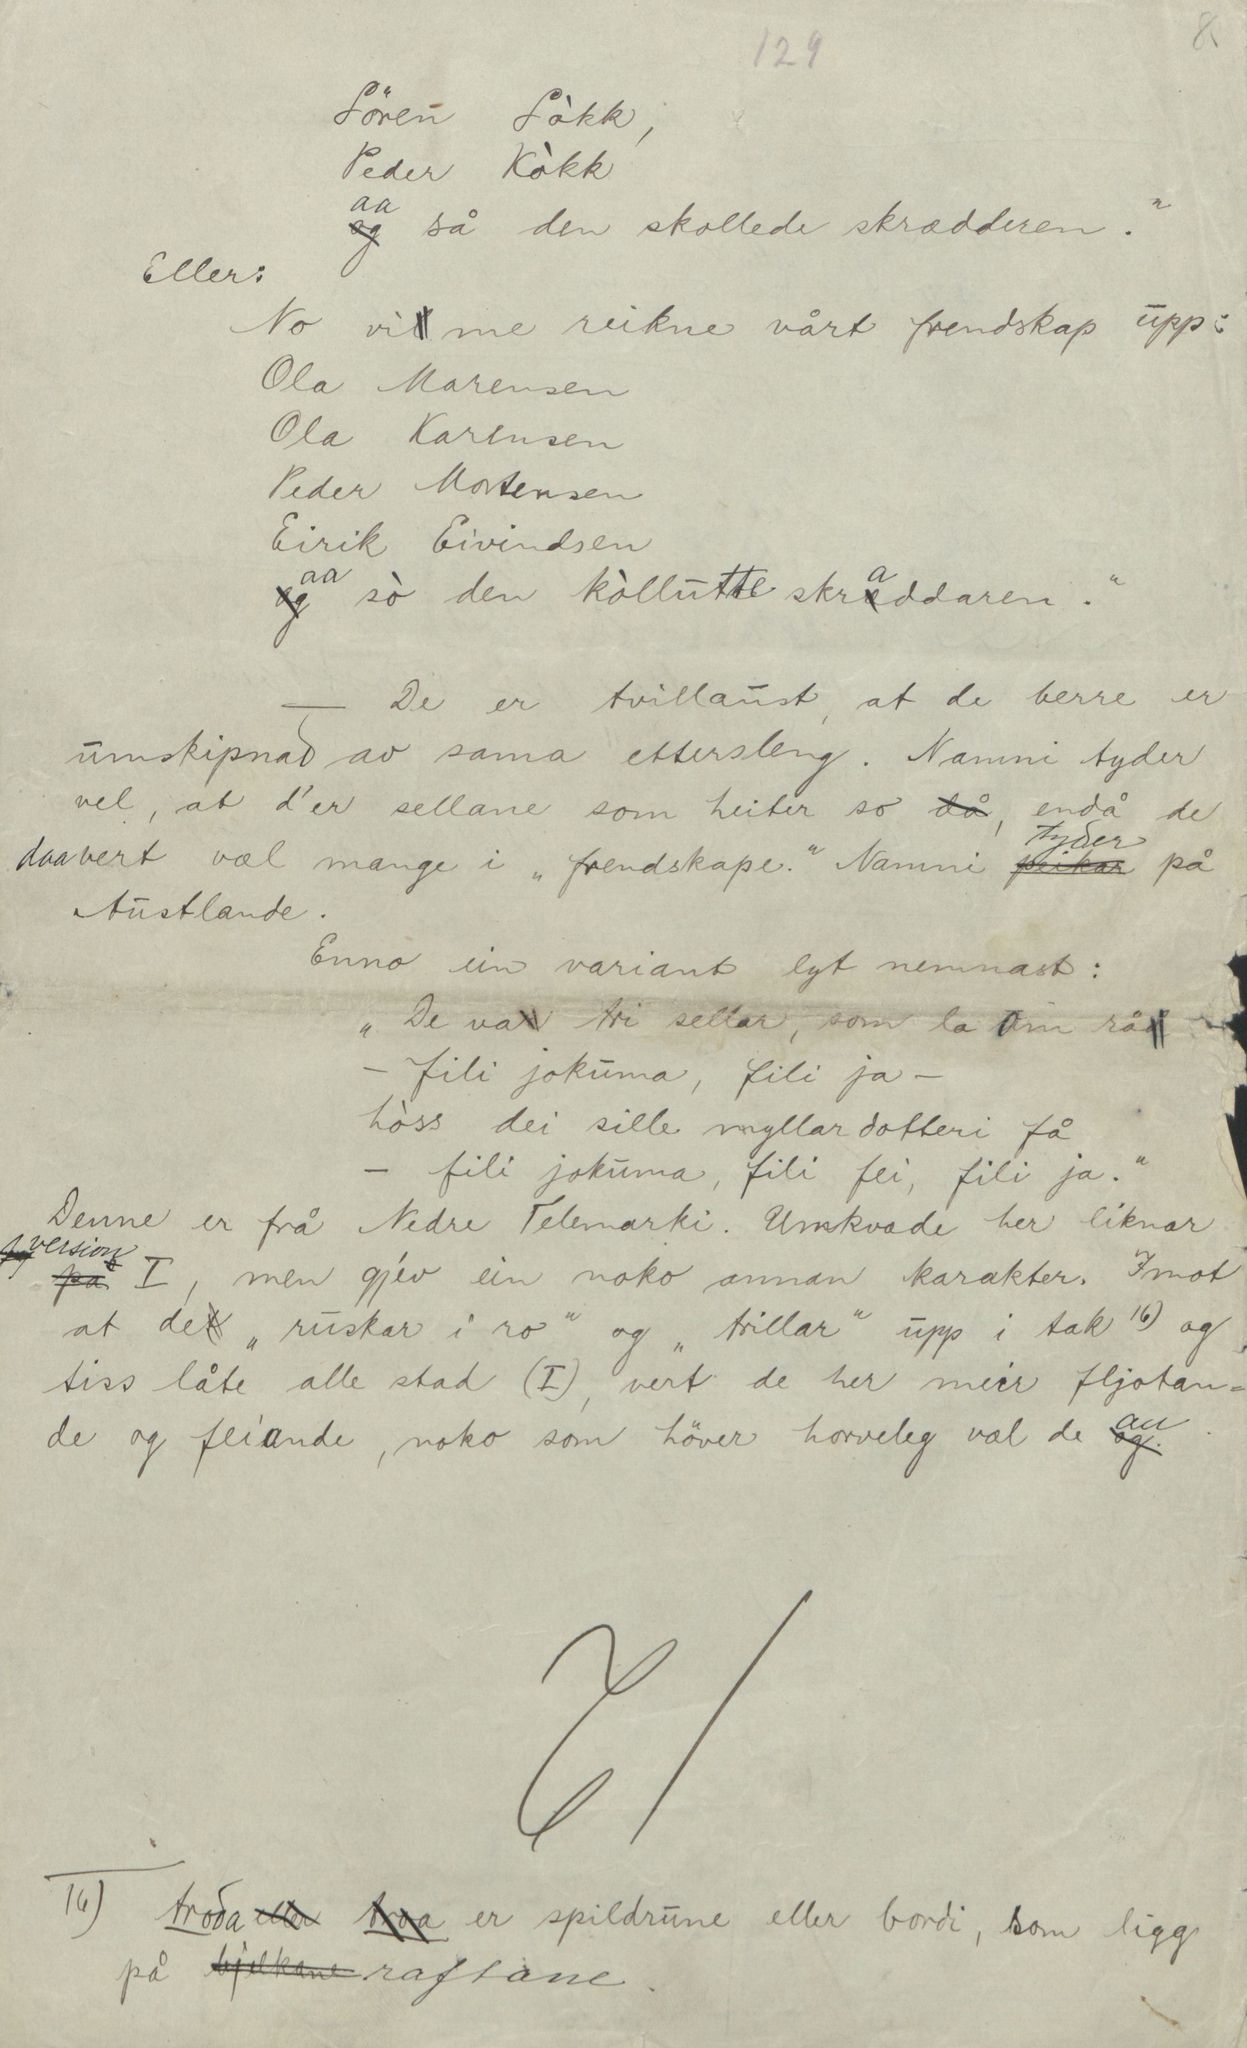 129
8
Sören Lòkk,
Peder Kòkk
aa
og så den skollede skrædderen."
Eller:
No vill me reikne vårt frendskap upp:
Ola Marensen
Ola Karensen
Peder Mortensen
Eirik Eivindsen
aa a
og sò den kòllutte skræddaren."
— De er tvillaust, at de berre er
umskipnad av sama ettersleng. Namni tyder
vel, at d'er sellane som heiter so då, endå de
tyder
daavert væl mange i „frendskape." Namni peikar på
Austlande.
Enno ein variant lyt nemnast:
„De var tri sellar, som la um rå
— fili jokuma, fili ja —
hòss dei sille myllardotteri få
— fili jokuma, fili fei, fili ja."
Denne er frå Nedre Telemarki. Umkvade her liknar
version
på I, men gjev ein noko annan karakter. Imot
at det „ruskar i ro" og „trillar" upp i tak 16) og
tiss låte alle stad (I), vert de her meir fljotan-
au
de og feiande, noko som höver horveleg væl de og.
16) troda eller troa er spildrune eller bordi, som ligg
på bjelkane raftane.